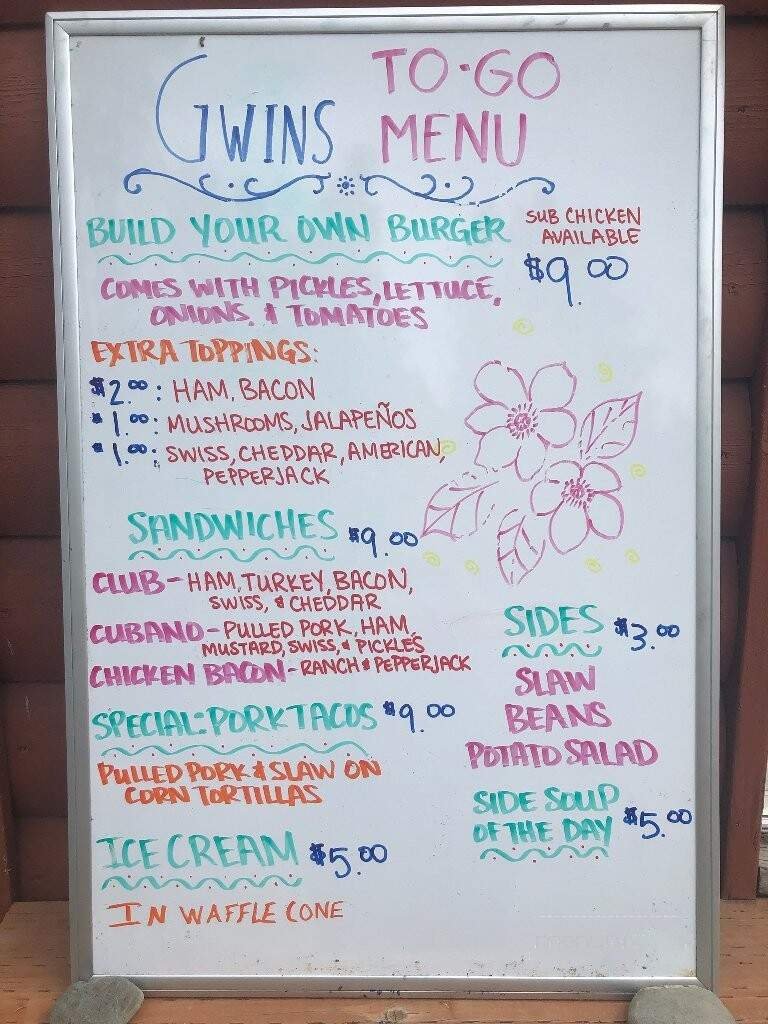 GWINS
TO-GO
MENU
BUILD YOUR OWN BURGER
SUB CHICKEN
AVAILABLE
$9.00
COMES WITH PICKLES, LETTUCE,
ONIONS. & TOMATOES
EXTRA TOPPINGS:
$2.00: HAM, BACON
$1.00: MUSHROOMS, JALAPEÑOS
$1.00: SWISS, CHEDDAR, AMERICAN,
PEPPERJACK
SANDWICHES $9.00
CLUB - HAM, TURKEY, BACON,
SWISS, & CHEDDAR
CUBANO - PULLED PORK, HAM,
MUSTARD, SWISS, & PICKLES
CHICKEN BACON - RANCH & PEPPERJACK
SPECIAL: PORK TACOS $9.00
PULLED PORK & SLAW ON
CORN TORTILLAS
ICE CREAM $5.00
IN WAFFLE CONE
SIDES $3.00
SLAW
BEANS
POTATO SALAD
SIDE SOUP
OF THE DAY $5.00